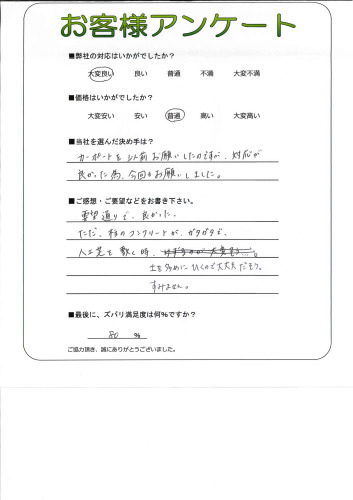 お客様アンケート
■弊社の対応はいかがでしたか？
大変良い 良い 普通 不満 大変不満
■価格はいかがでしたか？
大変安い 安い 普通 高い 大変高い
■当社を選んだ決め手は？
カーポートを以前お願いしたのですが、対応が
良かった為、今回もお願いしました。
■ご感想・ご要望などをお書き下さい。
要望通りで、良かった。
ただ、柱のコンクリートが、ガタガタで、
人工芝を敷く時、
土を多めにひくので大丈夫だろう。
すみません。
■最後に、ズバリ満足度は何%ですか？
80 %
ご協力頂き、誠にありがとうございました。